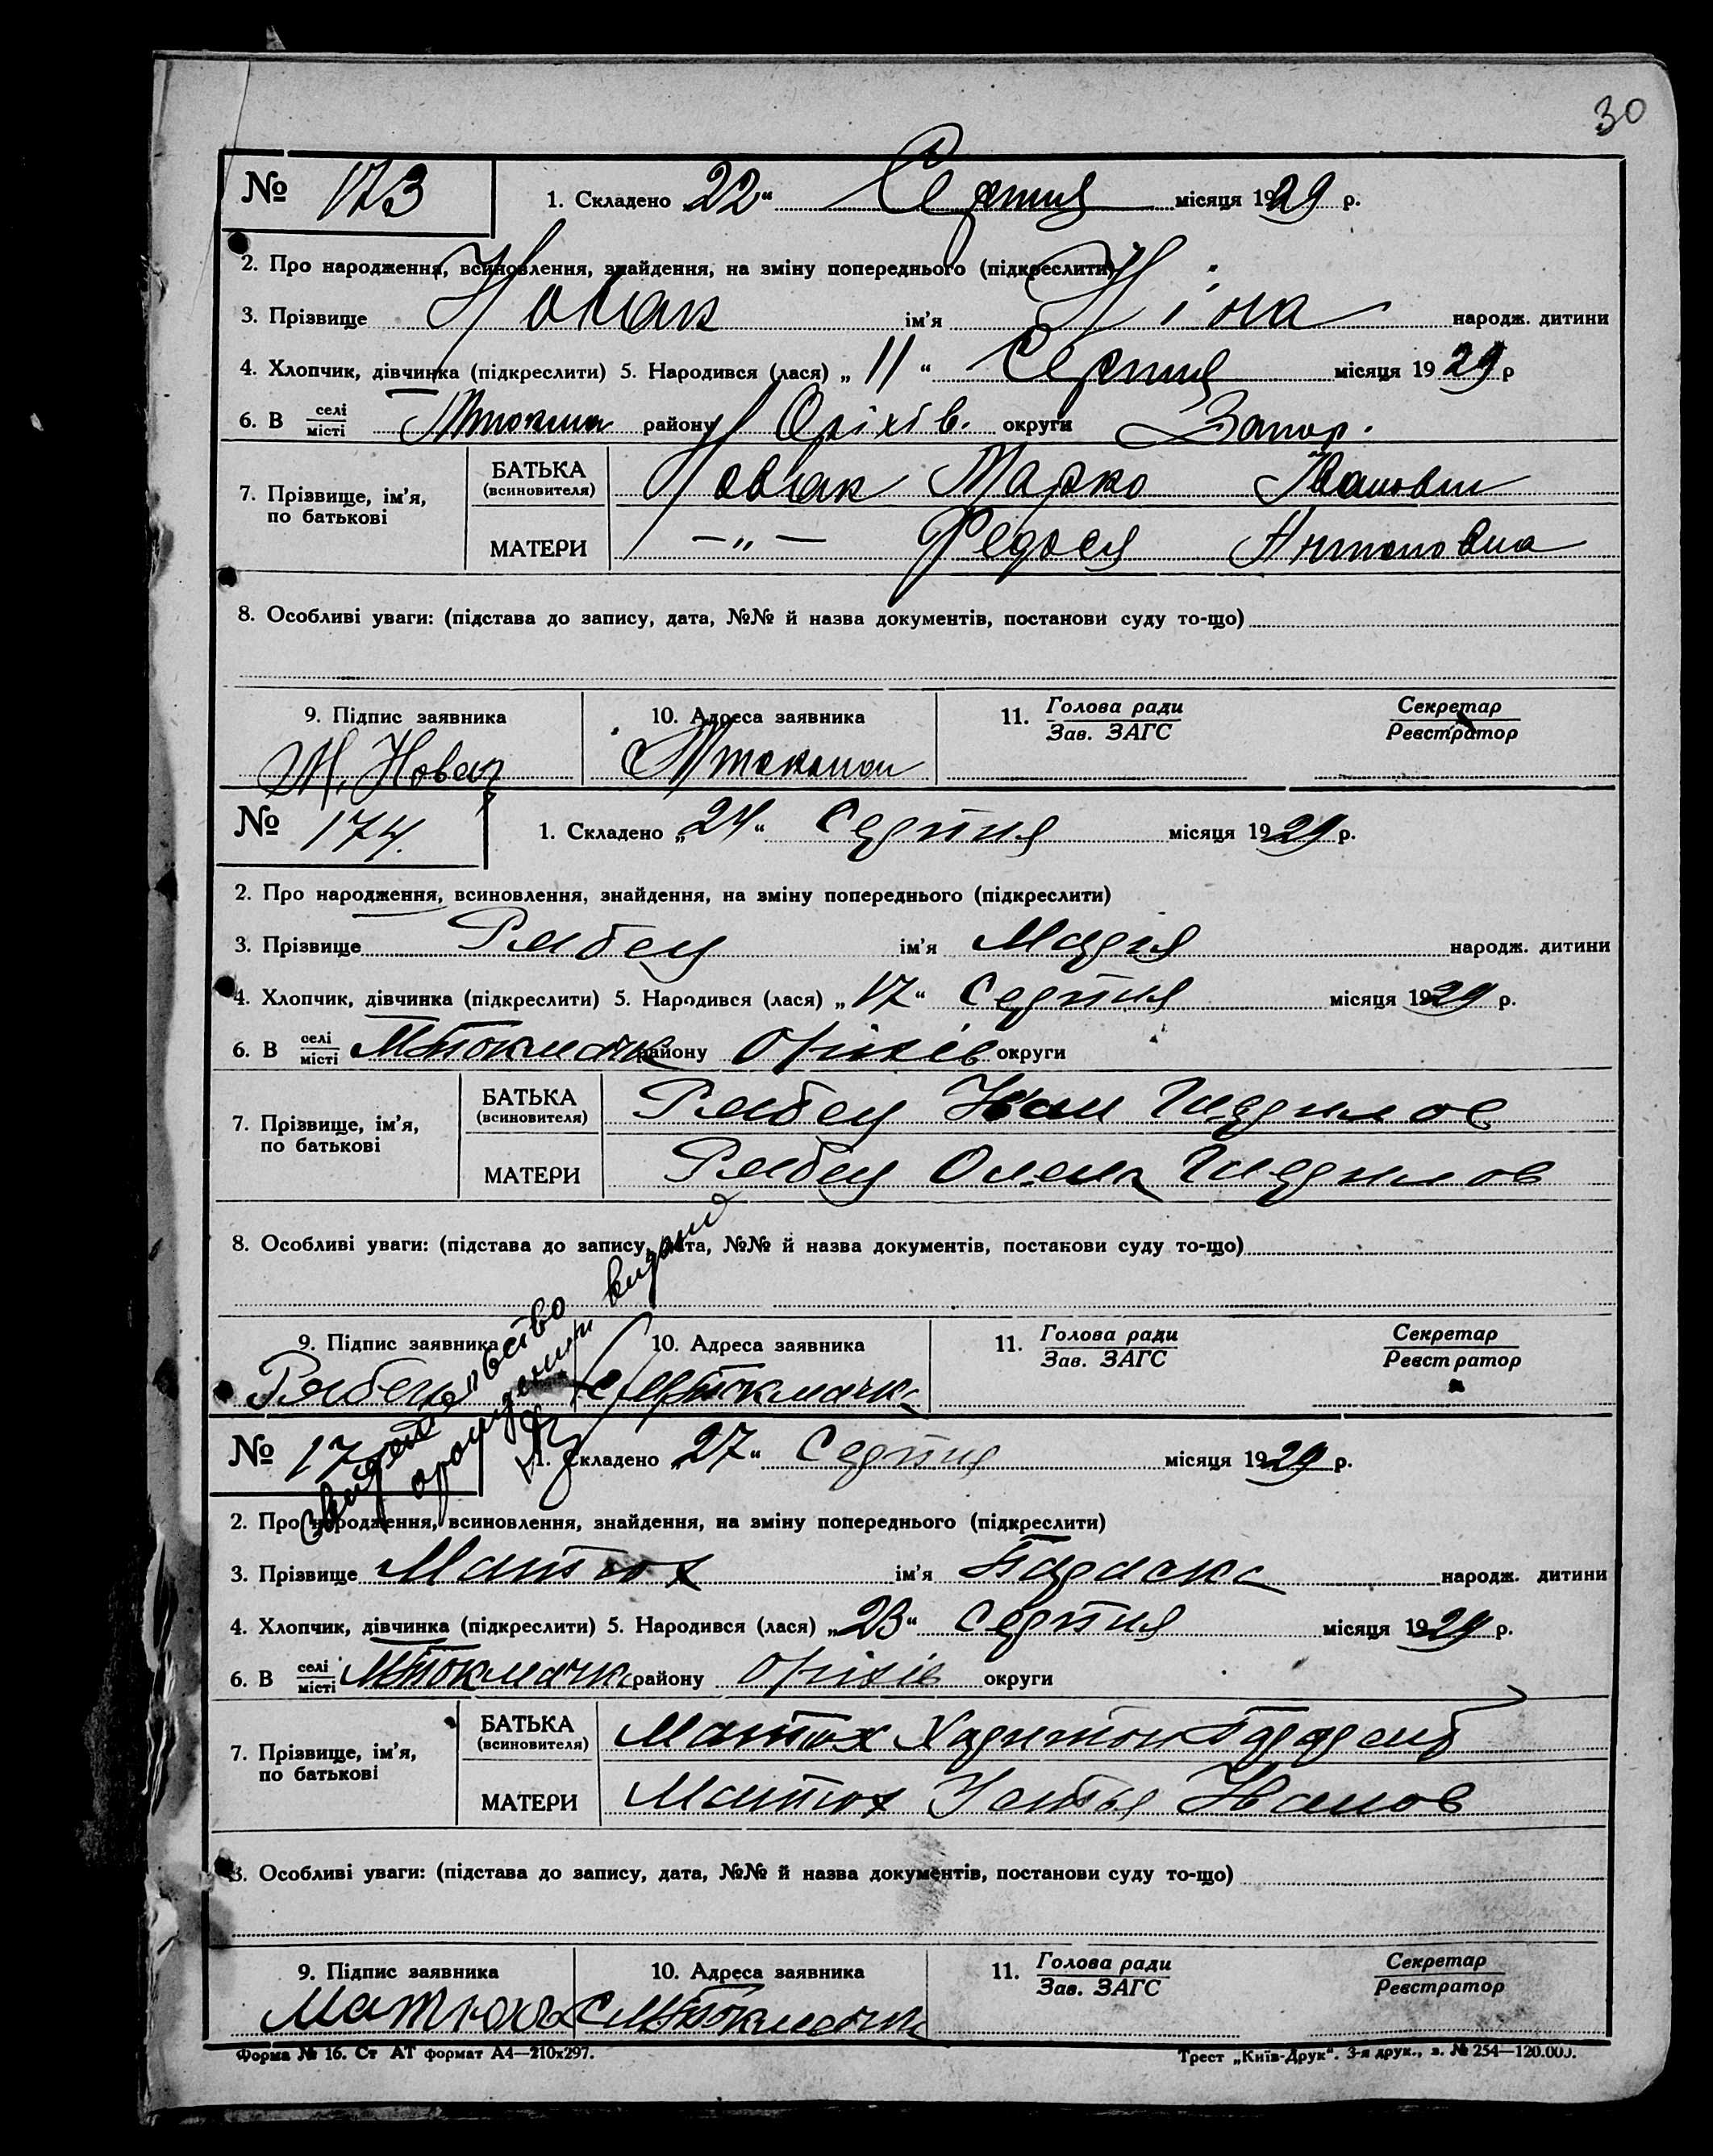 30
№ 173 1. Складено „22“ Серпня місяця 1929 р.
2. Про народження, всиновлення, знайдення, на зміну попереднього (підкреслити)
3. Прізвище Новак ім’я Ніна народж. дитини
4. Хлопчик, дівчинка (підкреслити) 5. Народився (лася) „11“ Серпня місяця 1929 р
6. В селі місті району Оріхів. округи Запор.
7. Прізвище, ім’я, по батькові
БАТЬКА (всиновителя) Новак Марко Іванович
МАТЕРИ —„— Федося Антоновна
8. Особливі уваги: (підстава до запису, дата, №№ й назва документів, постанови суду то-що)
9. Підпис заявника 10. Адреса заявника 11. Голова ради Зав. ЗАГС Секретар Реєстратор
М. Новак
№ 174. 1. Складено „24“ Серпня місяця 1929 р.
2. Про народження, всиновлення, знайдення, на зміну попереднього (підкреслити)
3. Прізвище Рябец ім’я Марія народж. дитини
4. Хлопчик, дівчинка (підкреслити) 5. Народився (лася) „17“ Серпня місяця 1929 р.
6. В селі місті МТокмачка району Оріхів округи
7. Прізвище, ім’я, по батькові
БАТЬКА (всиновителя) Рябец Иван
МАТЕРИ Рябец
8. Особливі уваги: (підстава до запису, дата, №№ й назва документів, постанови суду то-що)
9. Підпис заявника 10. Адреса заявника 11. Голова ради Зав. ЗАГС Секретар Реєстратор
Рябец с МТокмачка
№ 1. Складено „27“ Серпня місяця 1929 р.
2. Про народження, всиновлення, знайдення, на зміну попереднього (підкреслити)
3. Прізвище Матюх ім’я народж. дитини
4. Хлопчик, дівчинка (підкреслити) 5. Народився (лася) „23“ Серпня місяця 1929 р.
6. В селі місті МТокмачка району Оріхів округи
7. Прізвище, ім’я, по батькові
БАТЬКА (всиновителя) Матюх Харитон
МАТЕРИ Матюх Иванов
8. Особливі уваги: (підстава до запису, дата, №№ й назва документів, постанови суду то-що)
9. Підпис заявника 10. Адреса заявника 11. Голова ради Зав. ЗАГС Секретар Реєстратор
с МТокмачка
Форма № 16. Ст АТ формат А4—210x297. Трест „Київ-Друк“. 3-я друк., з. № 254—120.000.